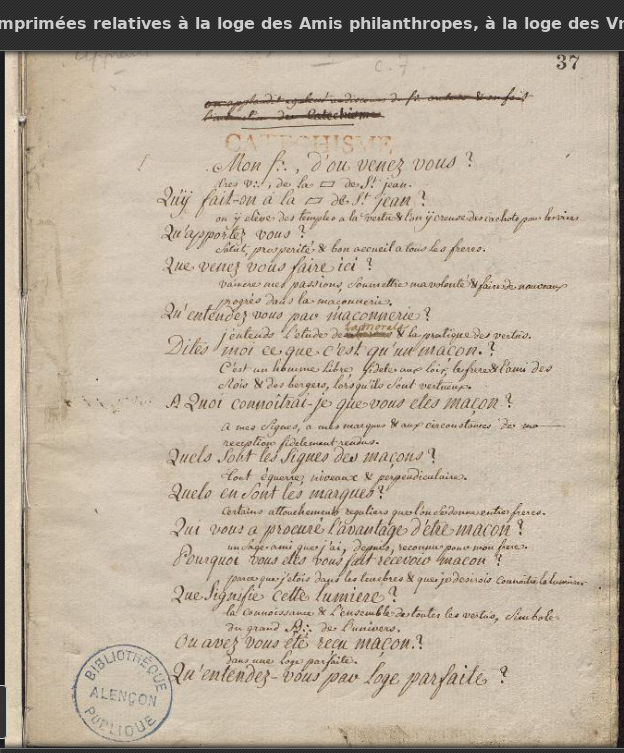 mprimées relatives à la loge des Amis philanthropes, à la loge des Vr
C. 7
37
on applaudit egalem.t au discours du f∴ orateur & on fait
des Catechisme
CATECHISME
Mon f∴, d'ou venez vous ?
tres v∴, de la ▭ de S.t jean.
Qu'y fait-on à la ▭ de S.t jean ?
on y eléve des temples a la vertu & l'on y creuse des cachots pour les vices
Qu'apportez vous ?
Salut, prosperité & bon accueil a tous les freres.
Que venez vous faire ici ?
vaincre mes passions, Soumettre ma volonté & faire de nouveaux
progrès dans la maçonnerie.
Qu'entendez vous par maçonnerie ?
j'entends L'étude de la morale & la pratique des vertus.
Dites moi ce que c'est qu'un maçon ?
C'est un homme Libre fidele aux loix, le frere & l'ami des
Rois & des bergers, lorsqu'ils Sont vertueux.
A Quoi connoîtrai-je que vous etes maçon ?
a mes Signes, a mes marques & aux circonstances de ma
reception fidelement rendus.
Quels Sont les Signes des maçons ?
Tout équerre, niveaux & perpendiculaire.
Quels en Sont les marques ?
Certains attouchements reguliers que l'on se donne entre freres.
Qui vous a procuré l'avantage d'étre maçon ?
un Sage ami que j'ai, depuis, reconnu pour mon frere.
Pourquoi vous etes vous fait recevoir maçon ?
parce que j'etois dans les tenebres & que je desirois connoître la lumiere
Que Signifie cette lumiere ?
la Connoissance & L'ensemble de toutes les vertus, Simbole
du grand A∴ de l'univers.
Ou avez vous été reçu maçon ?
dans une Loge parfaite.
Qu'entendez-vous par Loge parfaite ?
BIBLIOTHÈQUE
ALENÇON
PUBLIQUE